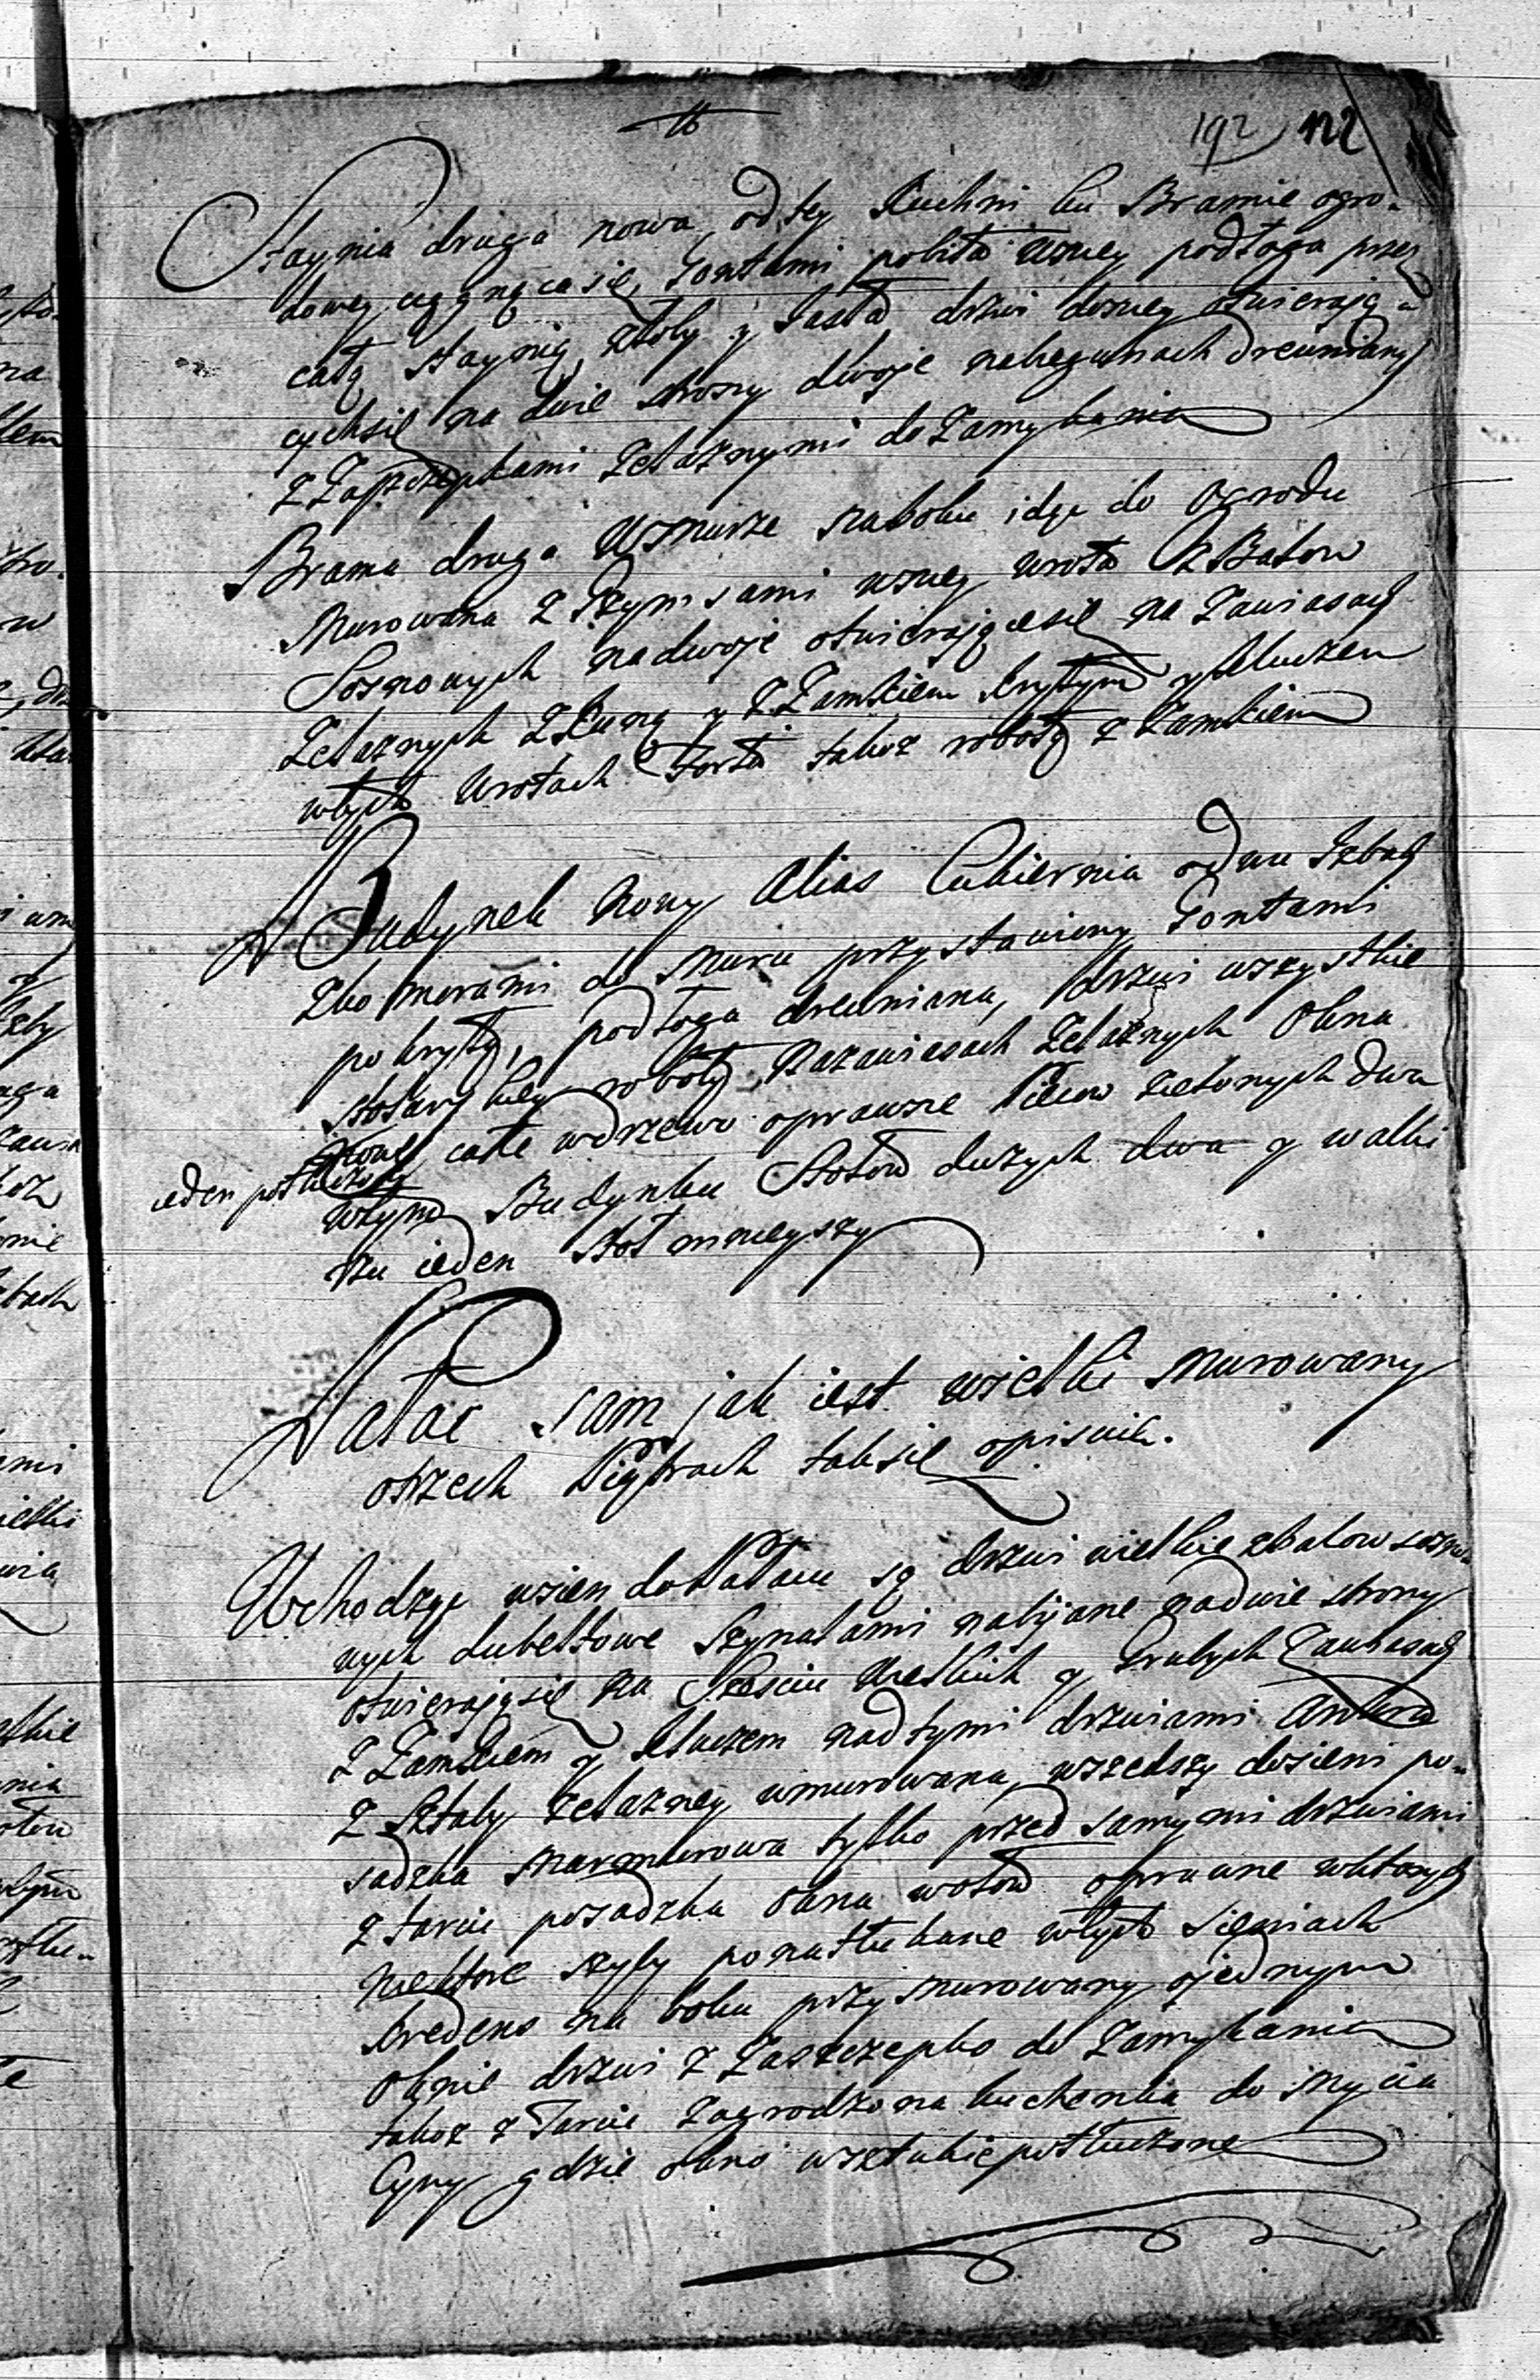 16
192 122
Staynia druga nowa, od tey Kuchni ku Bramie ogro-
dowey ciągnącasię, Gontami pobita wniey podłoga przez
całą staynię, żłoby y Jasła drzwi doniey otwierają-
cychsię na dwie strony dwoje nabiegunach Drewnianych
z Zaszczepkami Żelaznymi do Zamykania
Brama druga Wmurze naboku idąc do Ogrodu
Murowana z Gzymsami wniey wrota z Balow
Sosnowych nadwoje otwierającesię na Zawiasach
Żelaznych z Kuną y z Zamkiem krytym y kluczem
wtych Wrotach Forta takoż robotą z Zamkiem
Budynek Nowy alias Cukiernia odwu Izbach
Zkomorami do Muru przystawiony Gontami
pokryty, podłoga drewniana, drzwi wszystkie
stolarskiey roboty, Nazawiasach Żelaznych Okna
nowe całe wdrzewo oprawne Piecow zielonych dwa
ieden potłuczony
wtym Budynku Stołow dużych dwa y walki
ieden Stoł mnieyszy
Pałac sam jak iest wielki Murowany
otrzech Piętrach taksię opisuie.
Wchodząc wsien do Pałacu są drzwi wielkie zbalow sosno-
wych dubeltowe Szynalami nabijane nadwie strony
otwierającsię na Sześciu Wielkich y Grubych Zawiasach
z Zamkiem y kluczem nadtymi drzwiami
z Sztaby żelazney wmurowana, wszedszy dosieni po-
sadzka Marmurowa tylko przed samymi drzwiami
z tarcic posadzka Okna wołow oprawne wktorych
niektore szyby ponatłukane wtych Sieniach
kredens na boku przymurowany ojednym
Oknie drzwi z Zaszczepko do Zamykania
takoż z Tarcic Zagrodzona kuchenka do Mycia
Cyny gdzie okno wsztukiepotłuczone